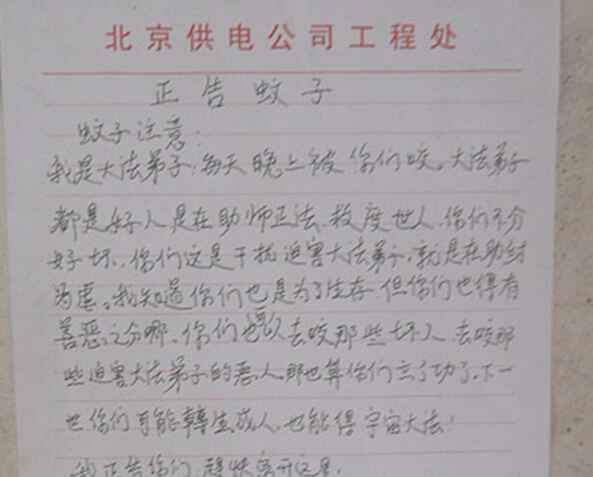 北京供电公司工程处
正告蚊子
蚊子注意:
我是大法弟子,每天晚上被你们咬。大法弟子
都是好人是在助师正法,救度世人,你们不分
好坏,你们这是干扰迫害大法弟子,就是在助纣
为虐。我知道你们也是为了生存,但你们也得有
善恶之分哪,你们也可以去咬那些坏人,去咬那
些迫害大法弟子的恶人,那也算你们立了功了,下一
世你们可能轉生成人,也能得宇宙大法!
我正告你们,趕快离开这里,